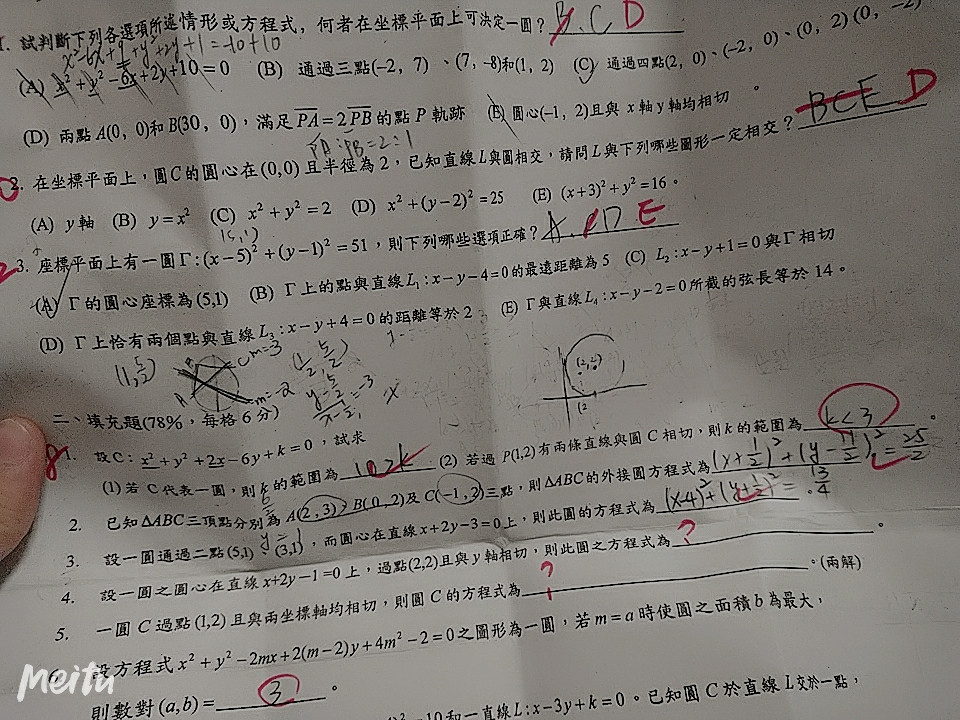 1. 試判斷下列各選項所述情形或方程式，何者在坐標平面上可決定一圓？ B.C D
x²-6x+9+y²+2y+1=-10+10
(A) x²+y²-6x+2y+10=0 (B) 通過三點(-2, 7)、(7, -8)和(1, 2) (C) 通過四點(2, 0)、(-2, 0)、(0, 2)(0, -2)
(D) 兩點A(0, 0)和B(30, 0)，滿足PA=2PB的點 P 軌跡 (E) 圓心(-1, 2)且與 x軸y軸均相切。
PA:PB=2:1
2. 在坐標平面上，圓C的圓心在(0,0)且半徑為2，已知直線L與圓相交，請問L與下列哪些圖形一定相交？ BCE D
(A) y軸 (B) y=x² (C) x²+y²=2 (D) x²+(y-2)²=25 (E) (x+3)²+y²=16。
(5,1)
3. 座標平面上有一圓Γ:(x-5)²+(y-1)²=51，則下列哪些選項正確？ A. D E
(A) Γ的圓心座標為(5,1) (B) Γ上的點與直線L₁:x-y-4=0的最遠距離為5 (C) L₂:x-y+1=0與Γ相切
(D) Γ上恰有兩個點與直線L₃:x-y+4=0的距離等於2 (E) Γ與直線L₄:x-y-2=0所截的弦長等於14。
m=3
m=-2
二、填充題(78%，每格6分)
1. 設C: x²+y²+2x-6y+k=0，試求
(1)若C代表一圓，則k的範圍為 10>k (2) 若過P(1,2)有兩條直線與圓C相切，則k的範圍為 k<3。
2. 已知ΔABC三頂點分別為A(2,3)、B(0,2)及C(-1,2)三點，則ΔABC的外接圓方程式為 (x+1/2)²+(y-11/2)²=25/2
3. 設一圓通過二點(5,1)、(3,1)，而圓心在直線x+2y-3=0上，則此圓的方程式為 (x-4)²+(y+1/2)²=13/4
4. 設一圓之圓心在直線x+2y-1=0上，過點(2,2)且與y軸相切，則此圓之方程式為 ?。
5. 一圓C過點(1,2)且與兩坐標軸均相切，則圓C的方程式為 ?。(兩解)
6. 設方程式x²+y²-2mx+2(m-2)y+4m²-2=0之圖形為一圓，若m=a時使圓之面積b為最大，
則數對(a,b)= 3。
-10和一直線L:x-3y+k=0。已知圓C於直線L交於一點，
Meitu